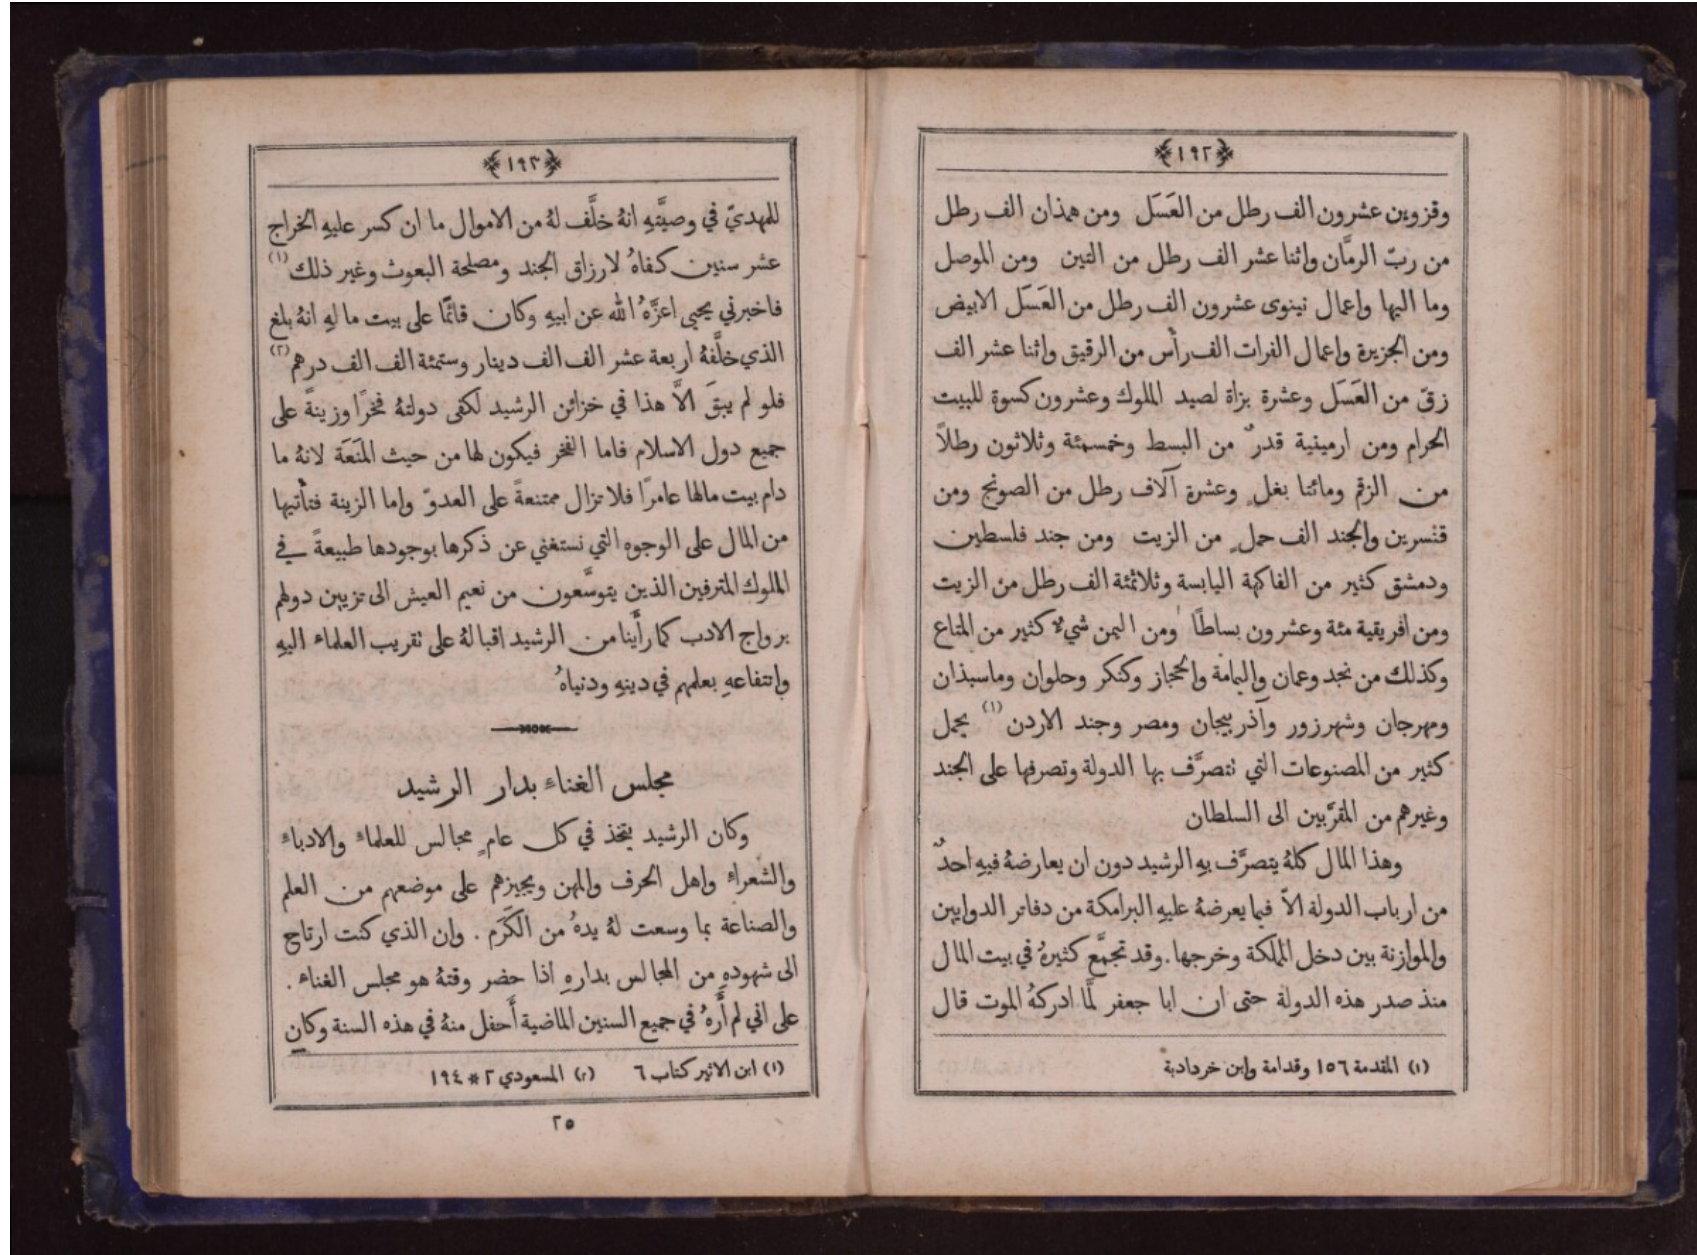 ﴿١٩٢﴾
وقزوين عشرون الف رطل من العَسَل ومن همذان الف رطل
من ربّ الرمَّان واثنا عشر الف رطل من التين ومن الموصل
وما اليها واعمال نينوى عشرون الف رطل من العَسَل الابيض
ومن الجزيرة واعمال الفرات الف رأس من الرقيق واثنا عشر الف
زقّ من العَسَل وعشرة بزاة لصيد الملوك وعشرون كسوة للبيت
الحرام ومن ارمينية قدرٌ من البسط وخمسمئة وثلاثون رطلاً
من الزقم ومائتا بغلٍ وعشرة آلاف رطل من الصونج ومن
قنسرين والجند الف حملٍ من الزيت ومن جند فلسطين
ودمشق كثير من الفاكهة اليابسة وثلاثمئة الف رطل من الزيت
ومن افريقية مئة وعشرون بساطًا ومن اليمن شيءٌ كثير من المتاع
وكذلك من نجد وعمان واليمامة والحجاز وكنكر وحلوان وماسبذان
ومهرجان وشهرزور وآذربيجان ومصر وجند الاردن (١) يحمل
كثير من المصنوعات التي تتصرَّف بها الدولة وتصرفها على الجند
وغيرهم من المقرَّبين الى السلطان
وهذا المال كلهُ يتصرَّف بهِ الرشيد دون ان يعارضهُ فيهِ احدٌ
من ارباب الدولة الاَّ فيما يعرضهُ عليهِ البرامكة من دفاتر الدواوين
والموازنة بين دخل المملكة وخرجها. وقد تجمَّع كثيرهُ في بيت المال
منذ صدر هذه الدولة حتى ان ابا جعفر لمَّا ادركهُ الموت قال
(١) المقدمة ١٥٦ وقدامة وابن خردادبة
﴿١٩٣﴾
للمهديّ في وصيَّتهِ انهُ خلَّف لهُ من الاموال ما ان كسر عليهِ الخراج
عشر سنين كفاهُ لارزاق الجند ومصلحة البعوث وغير ذلك (١)
فاخبرني يحيى اعزَّهُ الله عن ابيهِ وكان قائمًا على بيت مالهِ انهُ بلغ
الذي خلَّفهُ اربعة عشر الف الف دينار وستمئة الف الف درهم (٢)
فلو لم يبقَ الاَّ هذا في خزائن الرشيد لكفى دولتهُ فخرًا وزينةً على
جميع دول الاسلام فاما الفخر فيكون لها من حيث المَنَعَة لانهُ ما
دام بيت مالها عامرًا فلا تزال ممتنعةً على العدوّ واما الزينة فتأتيها
من المال على الوجوه التي نستغني عن ذكرها بوجودها طبيعةً في
الملوك المترفين الذين يتوسَّعون من نعيم العيش الى تزيين دولهم
برواج الادب كما رأَينا من الرشيد اقبالهُ على تقريب العلماء اليهِ
وانتفاعهِ بعلمهم في دينهِ ودنياهُ
مجلس الغناء بدار الرشيد
وكان الرشيد يتخذ في كل عامٍ مجالس للعلماء والادباء
والشعراء واهل الحرف والمهن ويجيزهم على موضعهم من العلم
والصناعة بما وسعت لهُ يدهُ من الكَرَم . وان الذي كنت ارتاح
الى شهودهِ من المجالس بدارهِ اذا حضر وقتهُ هو مجلس الغناء .
على اني لم أَرهُ في جميع السنين الماضية أَحفل منهُ في هذه السنة وكان
(١) ابن الاثير كتاب ٦ (٢) المسعودي ٢ * ١٩٤
٢٥